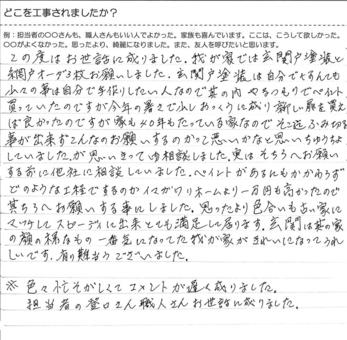 どこを工事されましたか?
例：担当者の〇〇さんも、職人さんもいい人でよかった。家族も喜んでいます。ここは、こうして欲しかった。
〇〇がよくなかった。思ったより、綺麗になりました。また、友人を呼びたいと思います。
この度はお世話に成りました。我が家では玄関戸塗装と
網戸オーダ3枚お願いしました。玄関戸塗装は自分でもすんでも
少々の事は自分でも作りしたい人なので其の内やるつもりでペイント
買っていたのですが今年の暑さで少しおっくうに成り新しい扉を買えば
ば良かったのですが家も40年もたっている家なのでそこ迄ふみ切る
事が出来ずこんなのお願いするのかって悪いかなと思いちゅうちょ
していました。が思いきって相談しました。実はそちらへお願い
する前に他社に相談していました。ペイントがあるにもかかわらず
どのような工程でするのかイスガワリホームより一万円も高かったので
其ちらへお願いする事にしました。思ったより色合いも古い家に
マッケしてスピーディに出来とても満足して居ります。玄関は其の家
の顔の様なもの一番気になってた我が家がきれいになってうれ
しいです。有り難うございました。
※色々忙そがしくてコメントが遅く成りました。
担当者の登口さん職人さんお世話に成りました。